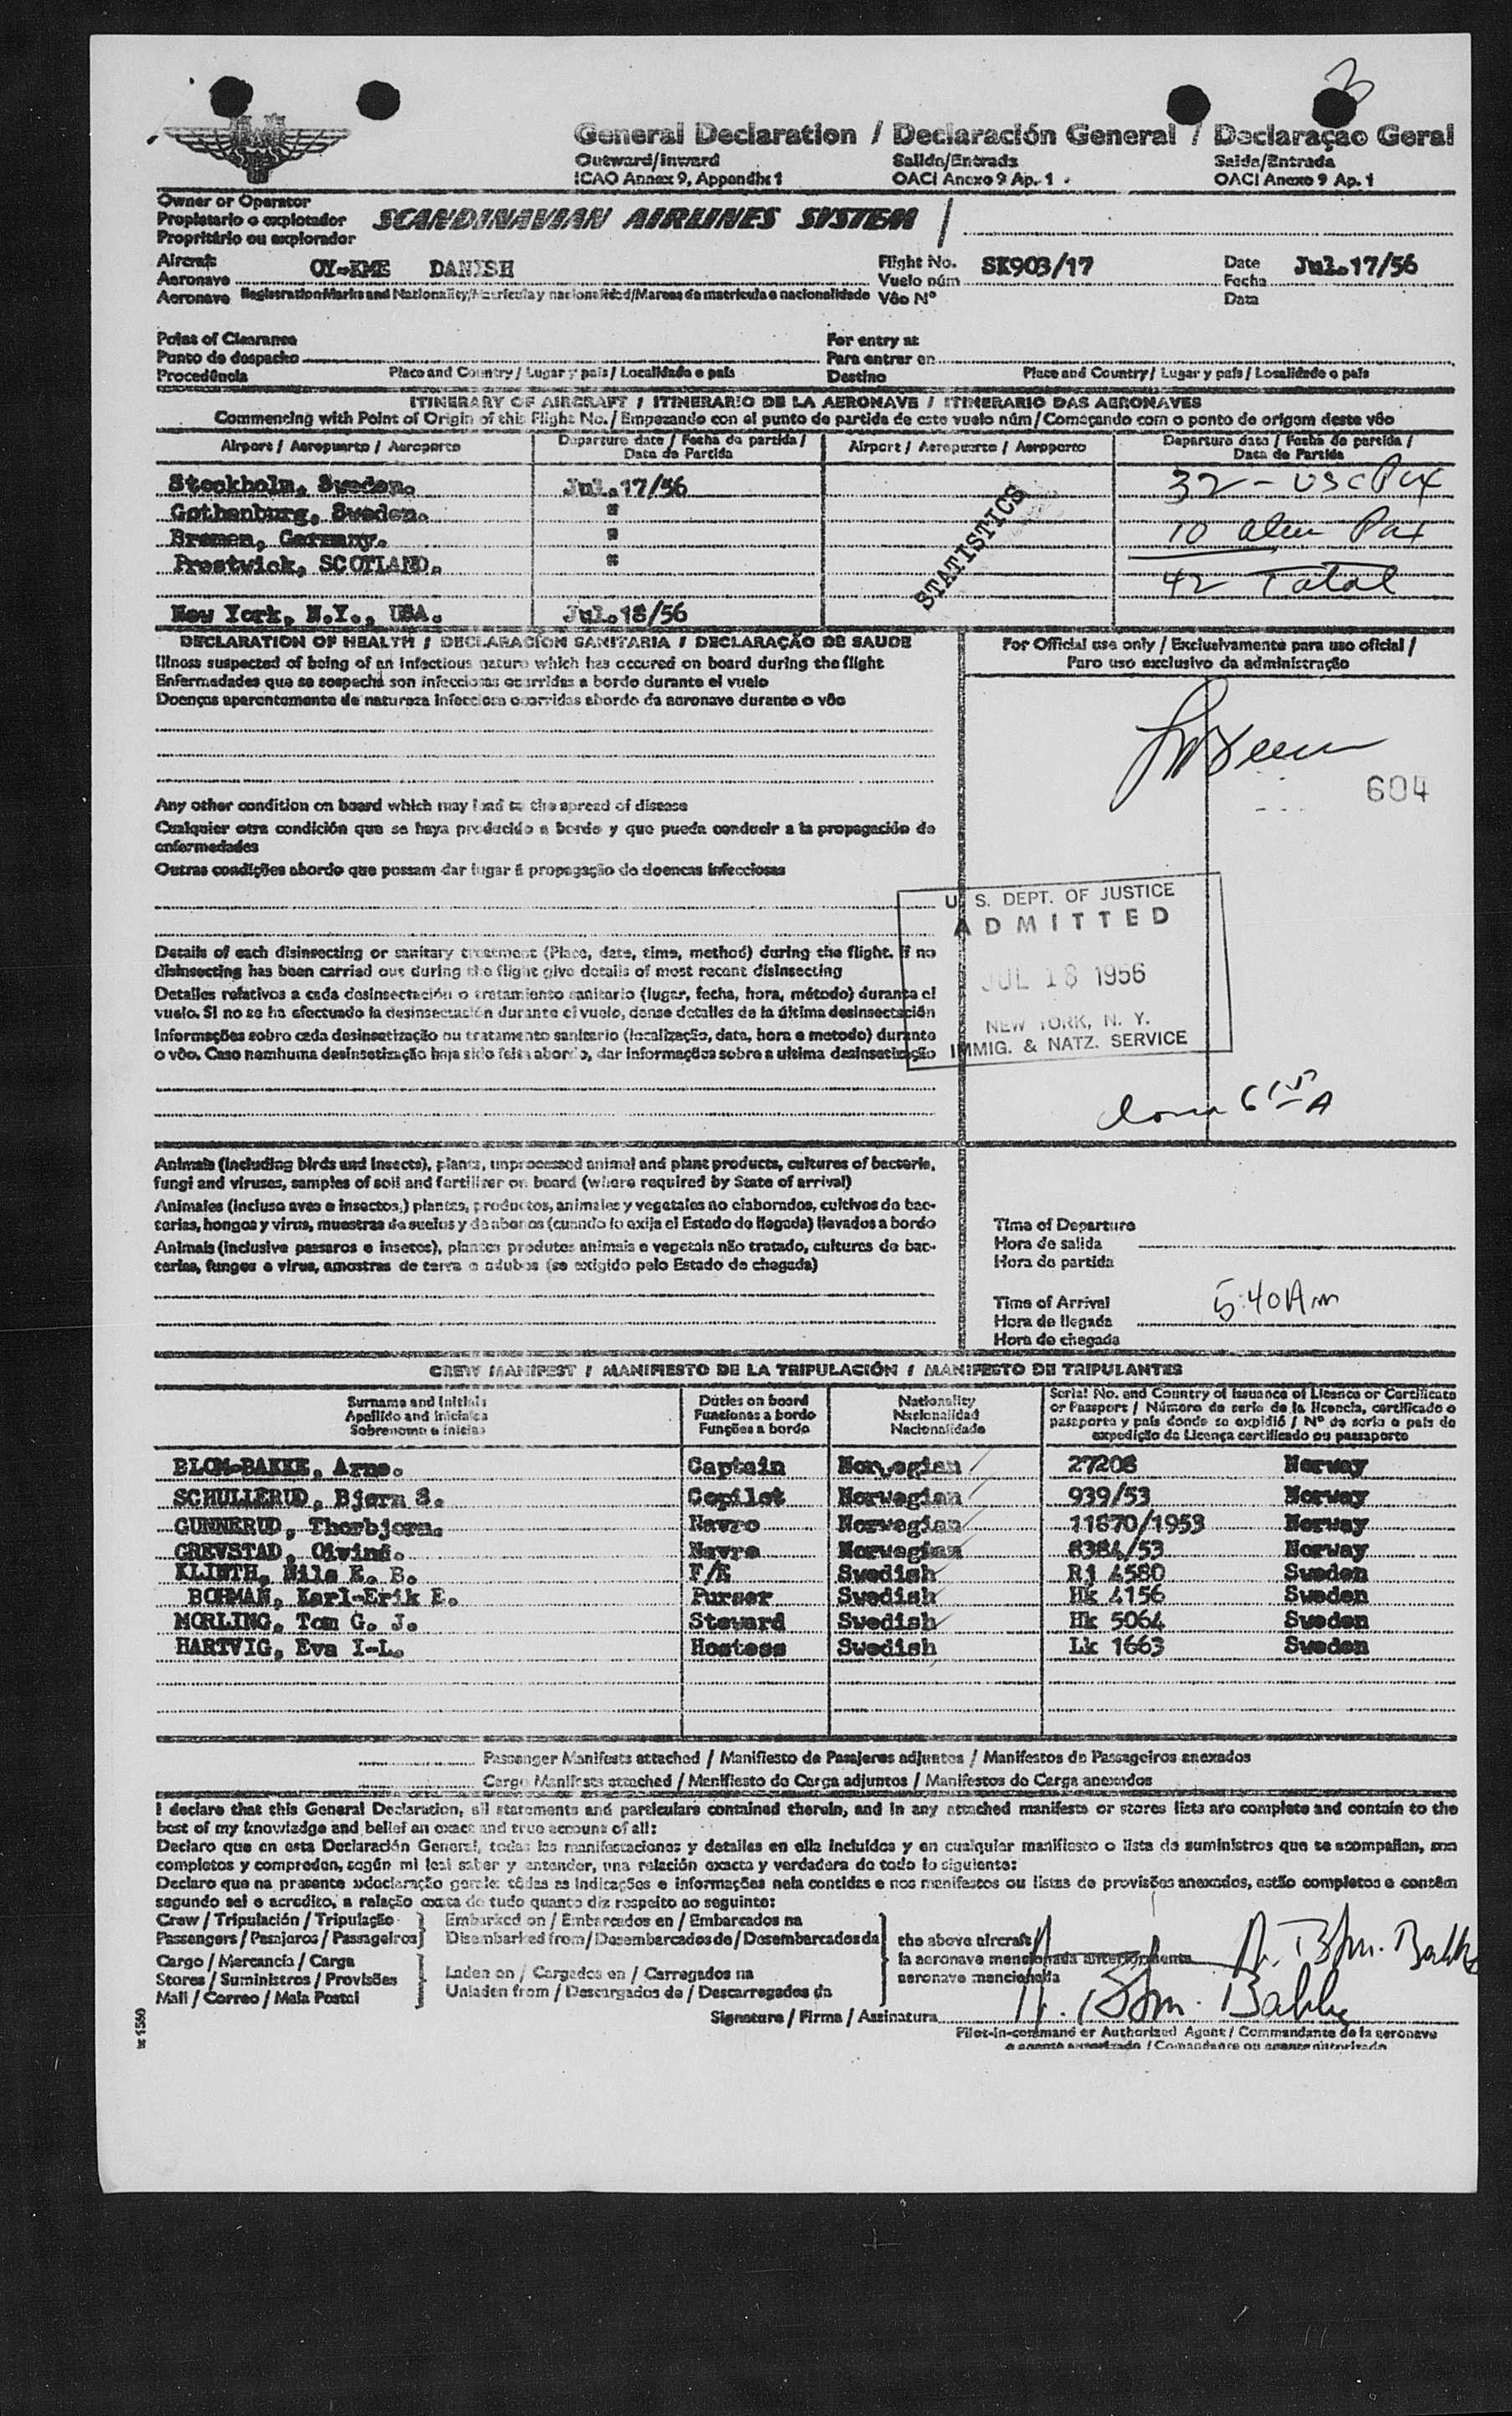 3
General Declaration / Declaración General / Declaraçao Geral
Outward/Inward Salida/Entrada Saida/Entrada
ICAO Annex 9, Appendix 1 OACI Anexo 9 Ap. 1 OACI Anexo 9 Ap. 1
Owner or Operator
Propietario o explotador SCANDINAVIAN AIRLINES SYSTEM
Propritário ou explorador
Aircraft OY-KME DANISH Flight No. SK903/17 Date Jul.17/56
Aeronave Vuelo núm Fecha
Aeronave Registration Marks and Nationality/Matrícula y nacionalidad/Marcas de matricula e nacionalidade Vôo Nº Data
Point of Clearance For entry at
Punto de despacho Para entrar en
Procedência Place and Country / Lugar y país / Localidade e país Destino Place and Country / Lugar y país / Localidade o país
ITINERARY OF AIRCRAFT / ITINERARIO DE LA AERONAVE / ITINERARIO DAS AERONAVES
Commencing with Point of Origin of this Flight No. / Empezando con el punto de partida de este vuelo núm / Começando com o ponto de origem deste vôo
Airport / Aeropuerto / Aeroporto Departure date / Fecha de partida / Airport / Aeropuerto / Aeroporto Departure date / Fecha de partida /
Data de Partida Data de Partida
Stockholm, Sweden. Jul.17/56 32 - USC Pax
Gothenburg, Sweden. "
Bremen, Germany. " 10 alien Pax
Prestwick, SCOTLAND. "
42 Total
STATISTICS
New York, N.Y., USA. Jul.18/56
DECLARATION OF HEALTH / DECLARACÍON SANITARIA / DECLARAÇÃO DE SAUDE For Official use only / Exclusivamente para uso oficial /
Illness suspected of being of an infectious nature which has occured on board during the flight Para uso exclusivo da administração
Enfermedades que se sospecha son infecciosas ocurridas a bordo durante el vuelo
Doenças aparentemente de natureza infecciosa ocorridas abordo da aeronave durante o vôo
604
Any other condition on board which may lead to the spread of disease
Cualquier otra condición que se haya producido a bordo y que pueda conducir a la propagación de
enfermedades
Outras condições abordo que possam dar lugar á propagação de doencas infecciosas
U. S. DEPT. OF JUSTICE
ADMITTED
JUL 18 1956
NEW YORK, N. Y.
IMMIG. & NATZ. SERVICE
Details of each disinsecting or sanitary treatment (Place, date, time, method) during the flight. If no
disinsecting has been carried out during the flight give details of most recent disinsecting
Detalles relativos a cada desinsectación o tratamiento sanitario (lugar, fecha, hora, método) durante el
vuelo. Si no se ha efectuado la desinsectación durante el vuelo, dense detalles de la última desinsectación
Informações sobre cada desinsetização ou tratamento sanitario (localização, data, hora e metodo) durante
o vôo. Caso nenhuma desinsetização haja sido feita abordo, dar informações sobre a ultima desinsetização
615 A
Animals (including birds and insects), plants, unprocessed animal and plant products, cultures of bacteria,
fungi and viruses, samples of soil and fertilizer on board (where required by State of arrival)
Animales (incluso aves e insectos,) plantas, productos, animales y vegetales no elaborados, cultivos de bac-
terias, hongos y virus, muestras de suelos y de abonos (cuando lo exija el Estado de llegada) llevados a bordo
Animais (inclusive passaros e insetos), plantas produtos animais e vegetais não tratado, culturas de bac-
terias, fungos e virus, amostras de terra e adubos (se exigido pelo Estado de chegada)
Time of Departure
Hora de salida
Hora de partida
Time of Arrival 5:40 Am
Hora de llegada
Hora de chegada
CREW MANIFEST / MANIFIESTO DE LA TRIPULACIÓN / MANIFESTO DE TRIPULANTES
Surname and Initials Duties on board Nationality Serial No. and Country of Issuance of Licence or Certificate
Apellido and iniciales Funciones a bordo Nacionalidad or Passport / Número de serie de la licencia, certificado o
Sobrenome e inicias Funções a bordo Nacionalidade pasaporte y país donde se expidió / Nº de serie e país de
expedição da Licença certificado ou passaporte
BLOM-BAKKE, Arne. Captain Norwegian 27208 Norway
SCHULLERUD, Bjorn S. Copilot Norwegian 939/53 Norway
GUNNERUD, Thorbjorn. Navro Norwegian 11870/1953 Norway
GREVSTAD, Oivind. Navro Norwegian 8384/53 Norway
KLINTH, Nils E. B. F/E Swedish Rj 4580 Sweden
BOHMAN, Karl-Erik E. Purser Swedish Hk 4156 Sweden
MORLING, Tom G. J. Steward Swedish Hk 5064 Sweden
HARTVIG, Eva I-L. Hostess Swedish Lk 1663 Sweden
Passenger Manifests attached / Manifiesto de Pasajeros adjuntos / Manifestos de Passageiros anexados
Cargo Manifests attached / Manifiesto de Carga adjuntos / Manifestos de Carga anexados
I declare that this General Declaration, all statements and particulars contained therein, and in any attached manifests or stores lists are complete and contain to the
best of my knowledge and belief an exact and true account of all:
Declaro que en esta Declaración General, todas las manifestaciones y detalles en ella incluídos y en cualquier manifiesto o lista de suministros que se acompañan, son
completos y compreden, según mi leal saber y entender, una relación exacta y verdadera de todo lo siguiente:
Declaro que na presente »declaração geral« tôdas as indicações e informações nela contidas e nos manifestos ou listas de provisões anexados, estão completos e contêm
segundo sei e acredito, a relação exata de tudo quanto diz respeito ao seguinte:
Crew / Tripulación / Tripulação Embarked on / Embarcados en / Embarcados na
Passengers / Pasajeros / Passageiros Disembarked from / Desembarcados de / Desembarcados da the above aircraft
Cargo / Mercancía / Carga la aeronave mencionada anteriormente
Stores / Suministros / Provisões Laden on / Cargados en / Carregados na aeronave mencionada
Mail / Correo / Mala Postal Unladen from / Descargados de / Descarregados da
A. Blm. Bakke
Signature / Firma / Assinatura A. Blm. Bakke
Pilot-in-command or Authorized Agent / Commandante de la aeronave
o agente autorizado / Comandante ou agente autorizado